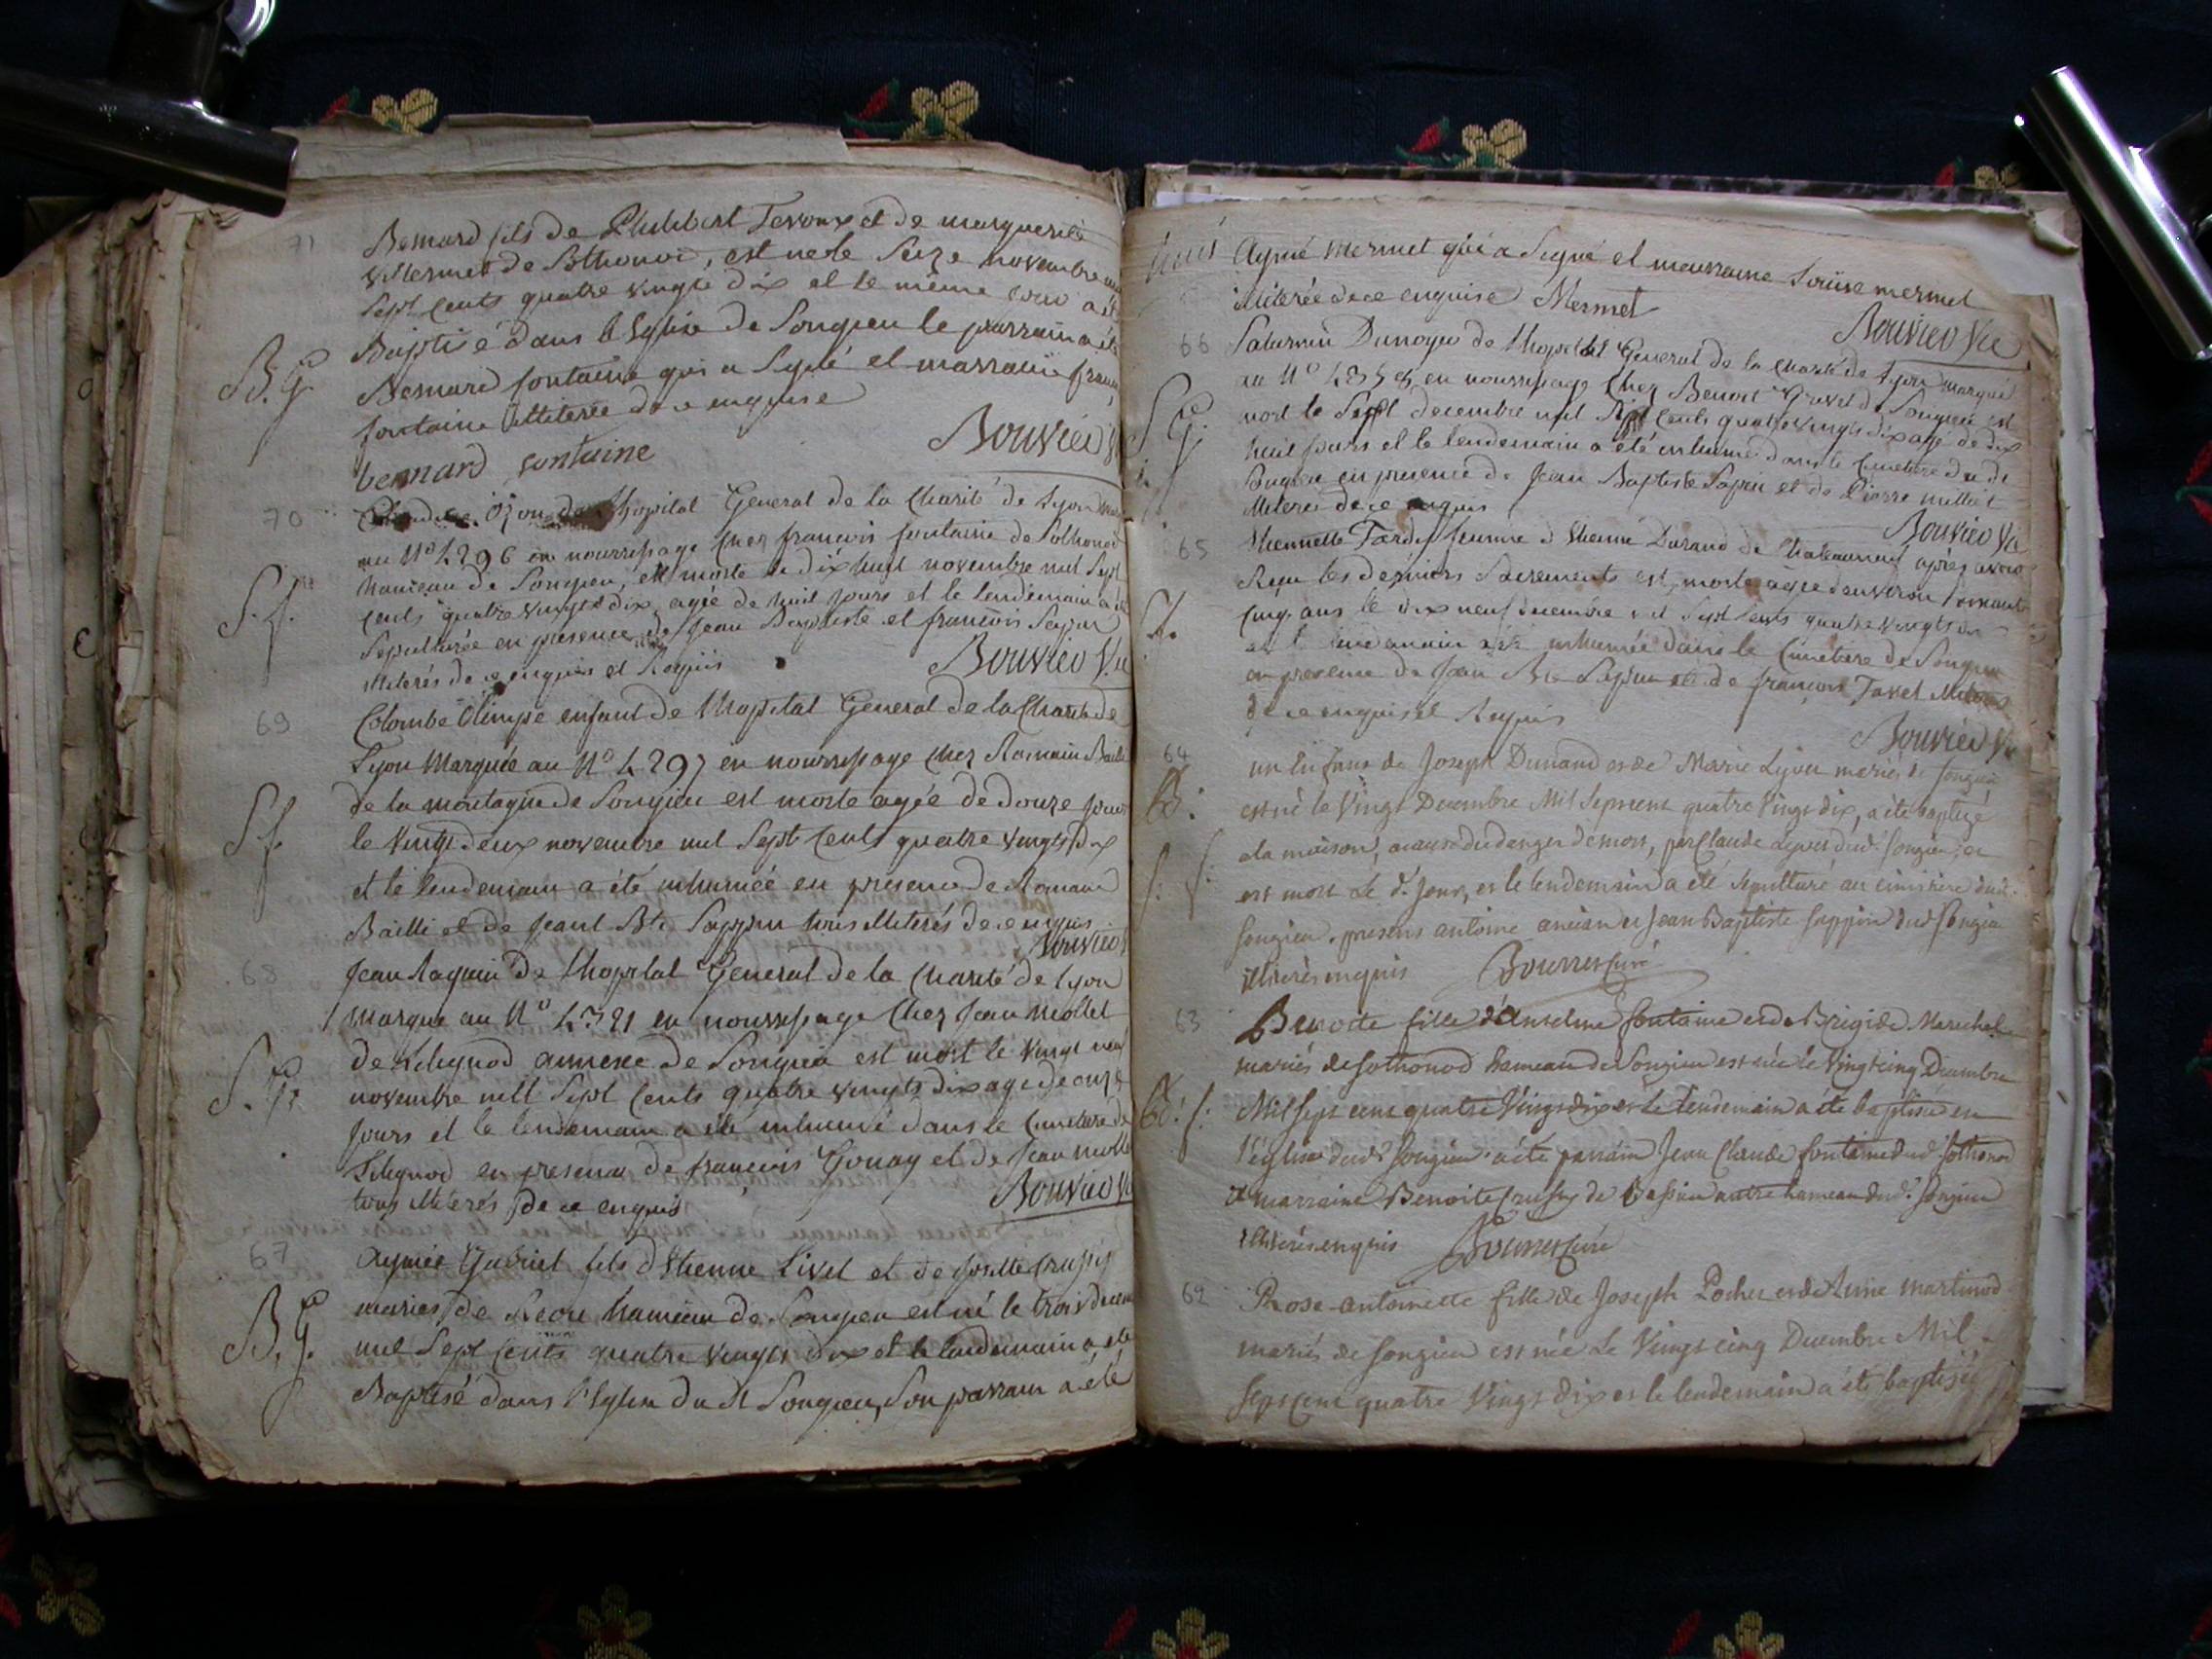 71 Bernard fils de Philibert Tevoux et de marguerite
villermet de Sothonod, est né le Seize novembre mil
Sept Cents quatre vingts dix et le même jour a été
B. G. Baptisé dans l'Eglise de Songieu le parrain a été
Bernard fontaine qui a Signé et marraine
fontaine illiterée de ce enquise
bernard fontaine Bouvier
70 de l'hopital General de la Charité de Lyon
au N° 4296 en nourrissage Chez françois fontaine de Sothonod
hameau de Songieu, est morte le dix huit novembre mil Sept
S. f. Cents quatre vingts dix agée de huit jours et le lendemain a été
Sepulturée en presence de Jean Baptiste et françois Sappin
illiterés de ce enquis et Requis Bouvier Vic
69 Colombe Olimpe enfant de l'hopital General de la Charité de
Lyon Marquée au N° 4297 en nourrissage Chez Romain Bailli
S f. de la montagne de Songieu est morte agée de douze jours
le vingt deux novembre mil Sept Cents quatre vingts dix
et le lendemain a été inhumée en presence de Romain
Bailli et de Jean Bte Sappin tous illiterés de ce enquis
Bouvier
68 Jean Raquin de l'hopital General de la Charité de Lyon
marqué au N° 4321 en nourrissage Chez Jean mollet
de annexe de Songieu est mort le vingt neuf
S. G. novembre mil Sept Cents quatre vingts dix agé de onze
jours et le lendemain a été inhumé dans le Cimetiere de
en presence de françois Gonay et de Jean mollet
tous illiterés de ce enquis Bouvier Vic
67 Aymé Gabriel fils d'Etienne Livet et de Josette Crussy
mariés de hameau de Songieu est né le trois decembre
B. G. mil Sept Cents quatre vingts dix et le lendemain a été
Baptisé dans l'Eglise du dt Songieu, Son parrain a été
Aymé Mermet qui a Signé et marraine Louise mermet
illiterée de ce enquise Mermet Bouvier Vic
66 Saturnin Dunoyer de l'hopital General de la Charité de Lyon marqué
au N° en nourrissage Chez Benoit de Songieu est
S. G. mort le Sept decembre mil Sept Cents quatre vingts dix agé de dix
huit jours et le lendemain a été inhumé dans le Cimetiere du dt
Songieu en presence de Jean Baptiste Sapin et de Pierre millet
illiterés de ce enquis Bouvier Vic
65 Etiennette Tardy femme d'Etienne Durand de Chateauneuf après avoir
Reçu les derniers Sacrements est morte agée d'environ
S. f. Cinq ans le dix neuf decembre mil Sept Cents quatre vingts dix
et le lendemain a été inhumée dans le Cimetiere de Songieu
en presence de Jean Bte Sapin et de françois Tavel illiterés
de ce enquis et Requis Bouvier Vic
64 un Enfant de Joseph Dunand et de Marie Lyvet mariés de Songieu
B. est né le Vingt Decembre Mil Septcent quatre Vingt dix, a été baptizé
a la maison, a cause du danger de mort, par Claude Lyvet dud. Songieu, et
S. f. est mort Le d. Jour, et le lendemain a été sepulturé au cimitiere dud.
Songieu. presens antoine ancian et Jean Baptiste Sappin dud Songieu
illiterés enquis Bourret Curé
63 Benoite fille d'Anselme fontaine et de Brigide Marechal
mariés de Sothonod hameau de Songieu est née le Vingt cinq Decembre
B. f. Mil Sept cent quatre Vingt dix et Le lendemain a été baptisée en
l'église dud. Songieu. a été parrain Jean Claude fontaine dud. Sothonod
et marraine Benoite Crussy de Bassieu autre hameau dud. Songieu
illiterés enquis Bourret Curé
62 Rose-antoinette fille de Joseph Pochet et de Anne martinod
mariés de Songieu est née Le Vingt cinq Decembre Mil
Sept cent quatre Vingt dix et le lendemain a été baptisée